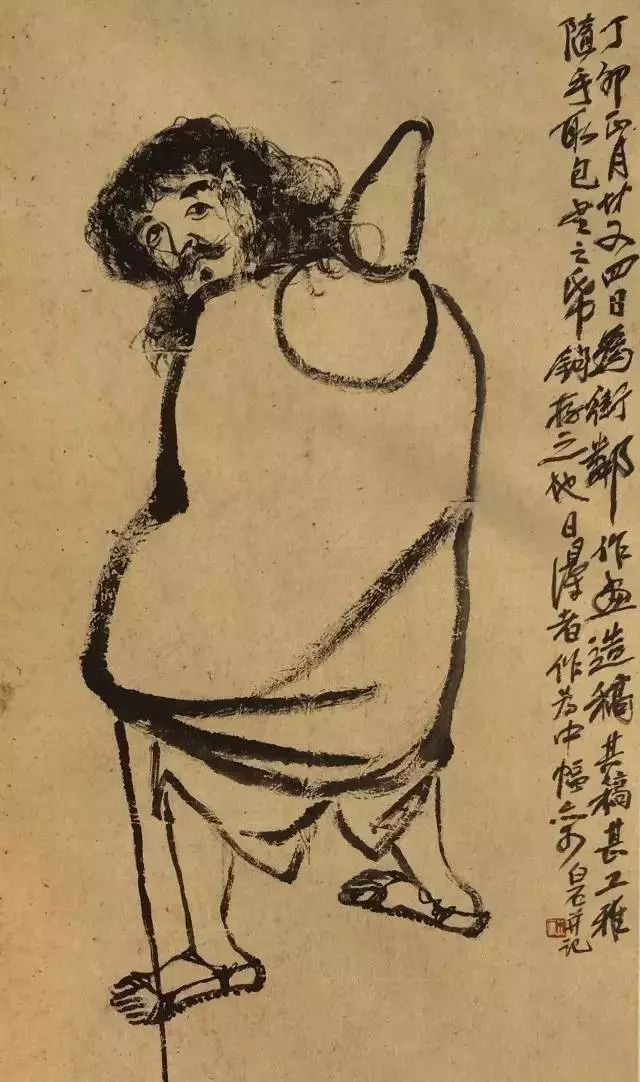 丁卯正月廿又四日為街鄰作畫造稿其稿甚工雅
隨手取包書之帋鉤存之他日得者作为中幅亦可 白石并記